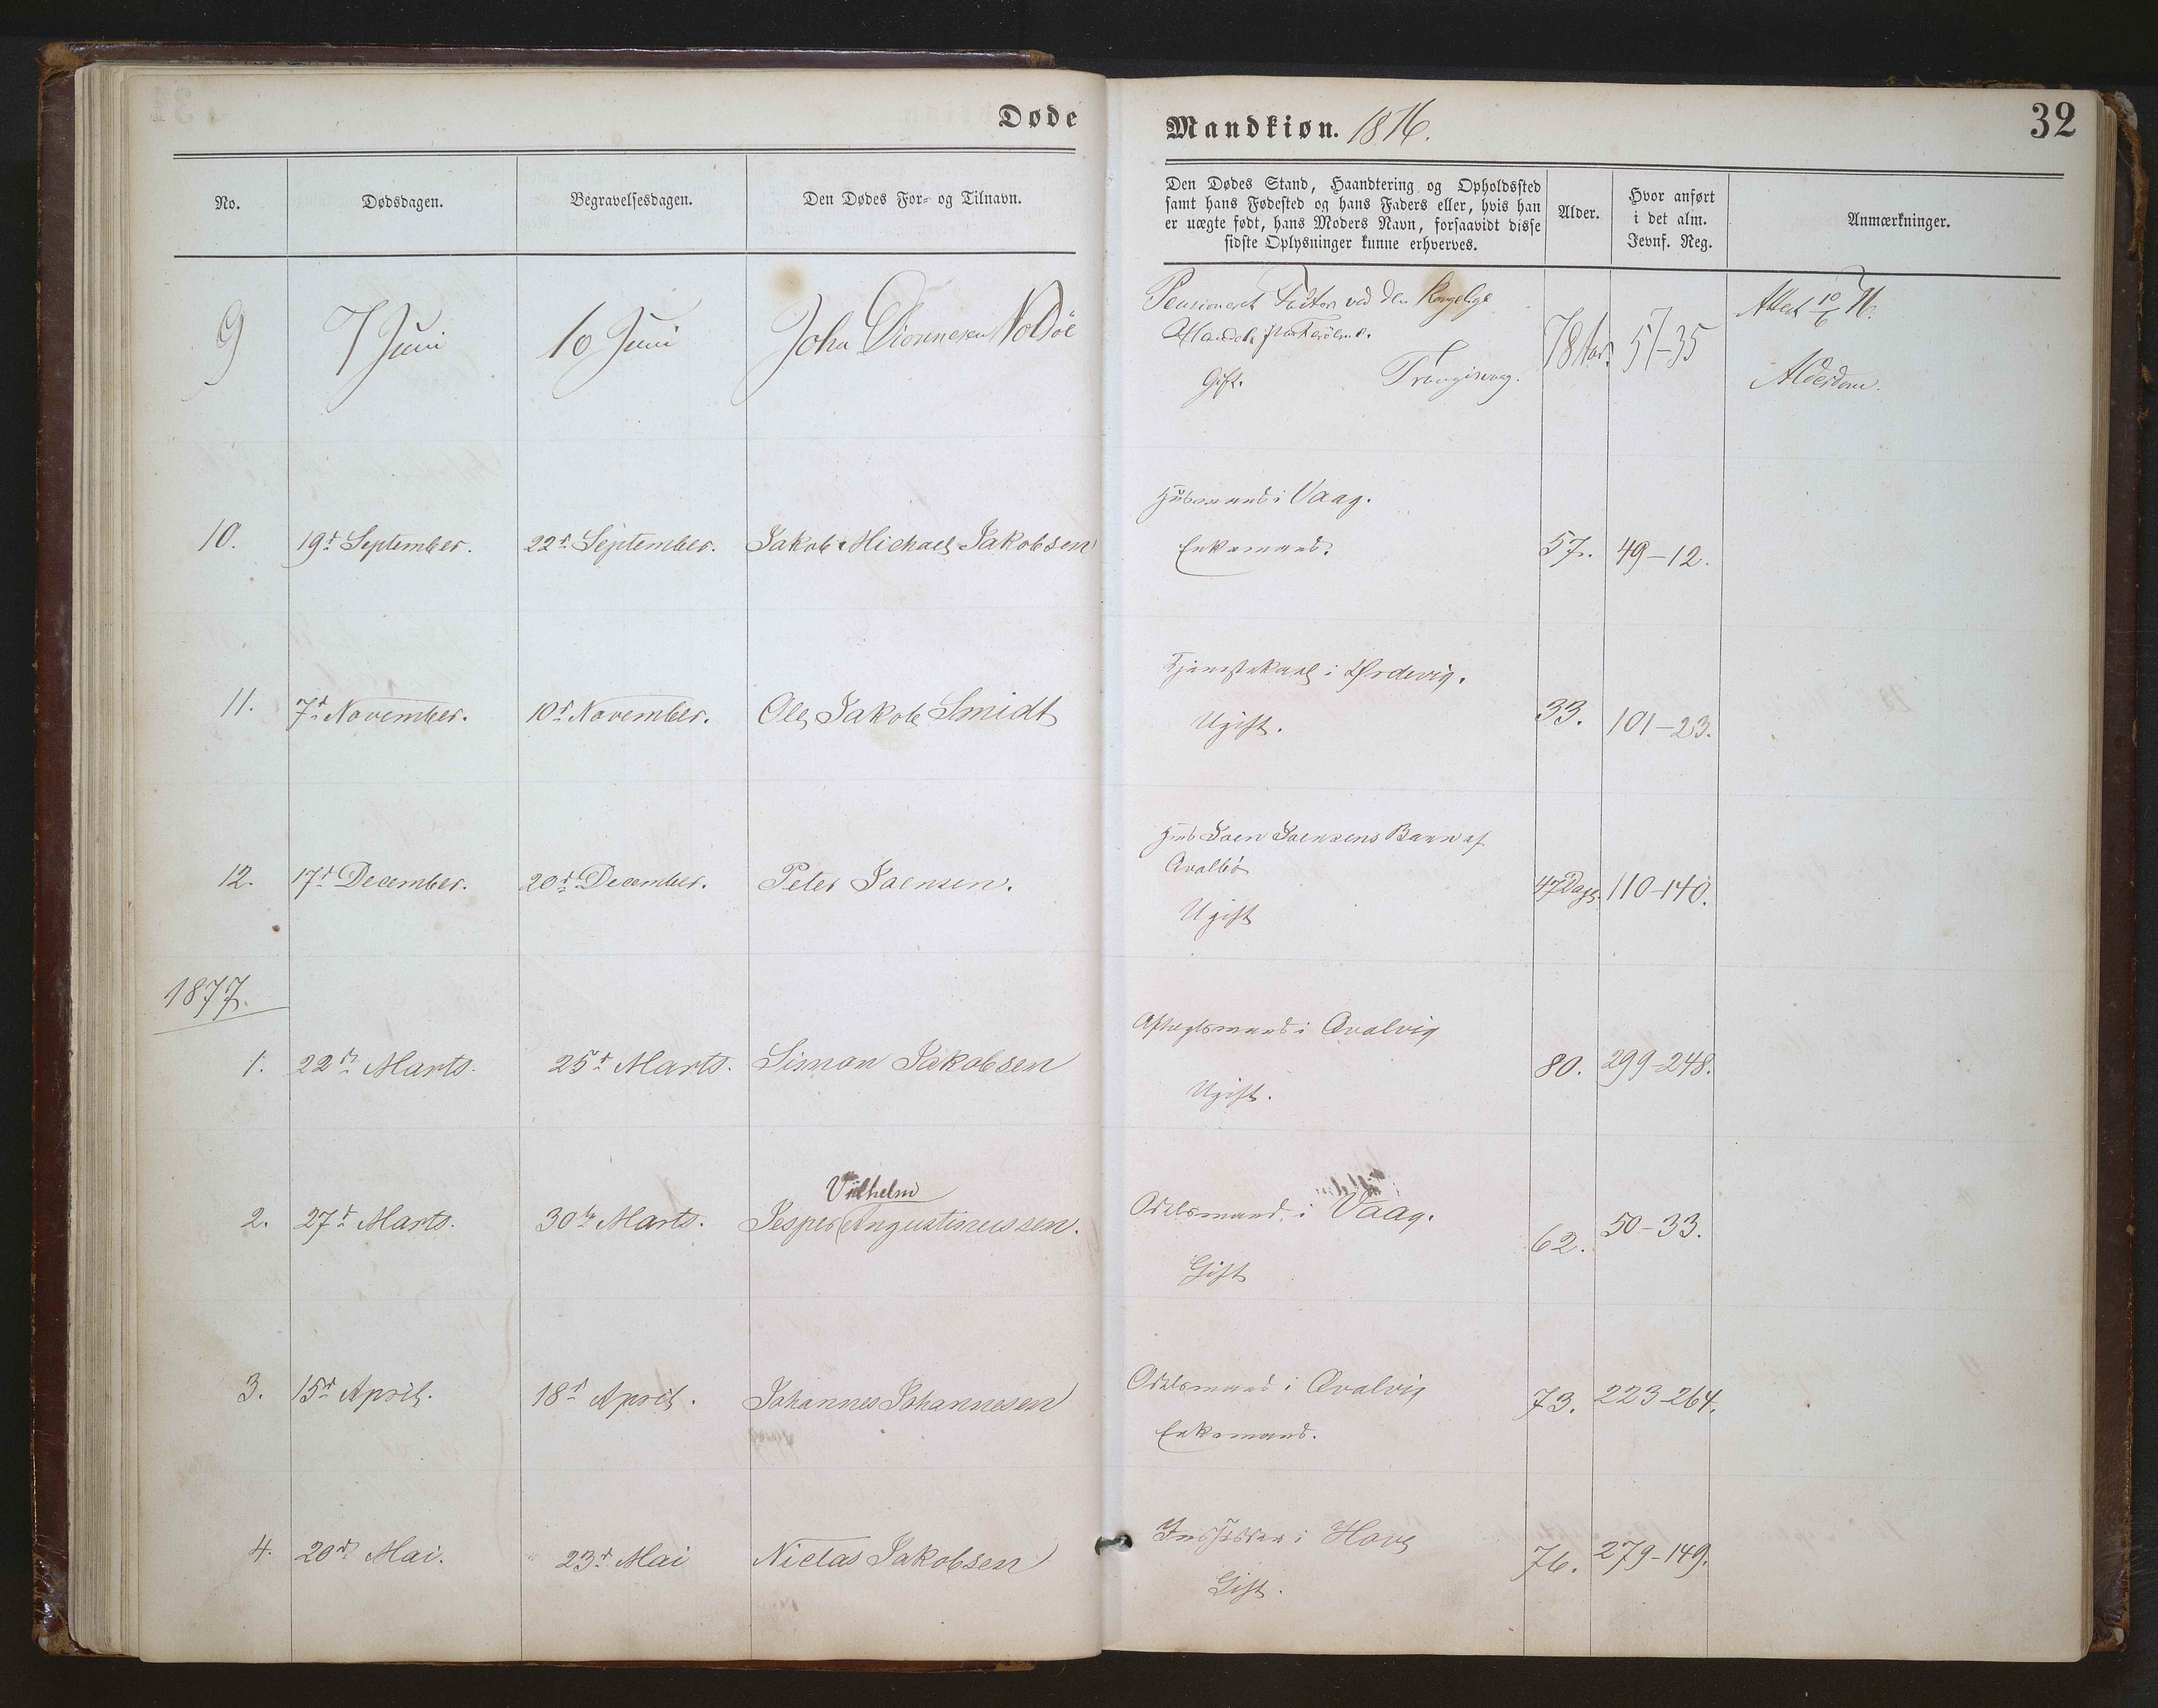 Døde
Mandkiøn. 1876.
32
No.
Dødsdagen.
Begravelsesdagen.
Den Dødes For- og Tilnavn.
Den Dødes Stand, Haandtering og Opholdssted
samt hans Fødested og hans Faders eller, hvis han
er uægte født, hans Moders Navn, forsaavidt disse
sidste Oplysninger kunne erhverves.
Alder.
Hvor anført
i det alm.
Jevnf. Reg.
Anmærkninger.
9 7 Juni 10 Juni John Nolsöe
Pensioneret Factor ved den kongelige
Gift. Trangisvaag.
78 Aar. 57-35
Attest 10/6 76.
Alderdom.
10. 19d September. 22d September. Jakob Michael Jakobsen
Huusmand i Vaag.
Enkemand.
57. 49-12.
11. 7d November. 10d November. Ole Jakob Smidt
Tjenestekarl i Ørdevig.
Ugift.
33. 101-23.
12. 17d December. 20d December. Peter Joensen.
Joen Joensens Barn af
Qvalbø
Ugift
47 Dage. 110-140.
1877.
1. 22d Marts. 25d Marts. Simon Jakobsen
Aftægtsmand i Qvalvig
Ugift.
80. 299-248.
Vilhelm
2. 27d Marts. 30te Marts. Jesper Augustinussen.
Odelsmand i Vaag.
Gift
62. 50-33.
3. 15d April. 18d April. Johannes Johannesen
Odelsmand i Qvalvig
Enkemand.
73. 223-264.
4. 20d Mai. 23d Mai Niclas Jakobsen
Indsidder i Hove
Gift.
76. 279-149.